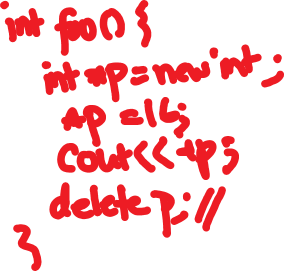 int foo() {
int *p = new int;
*p = 16;
cout<<*p;
delete p; //
}